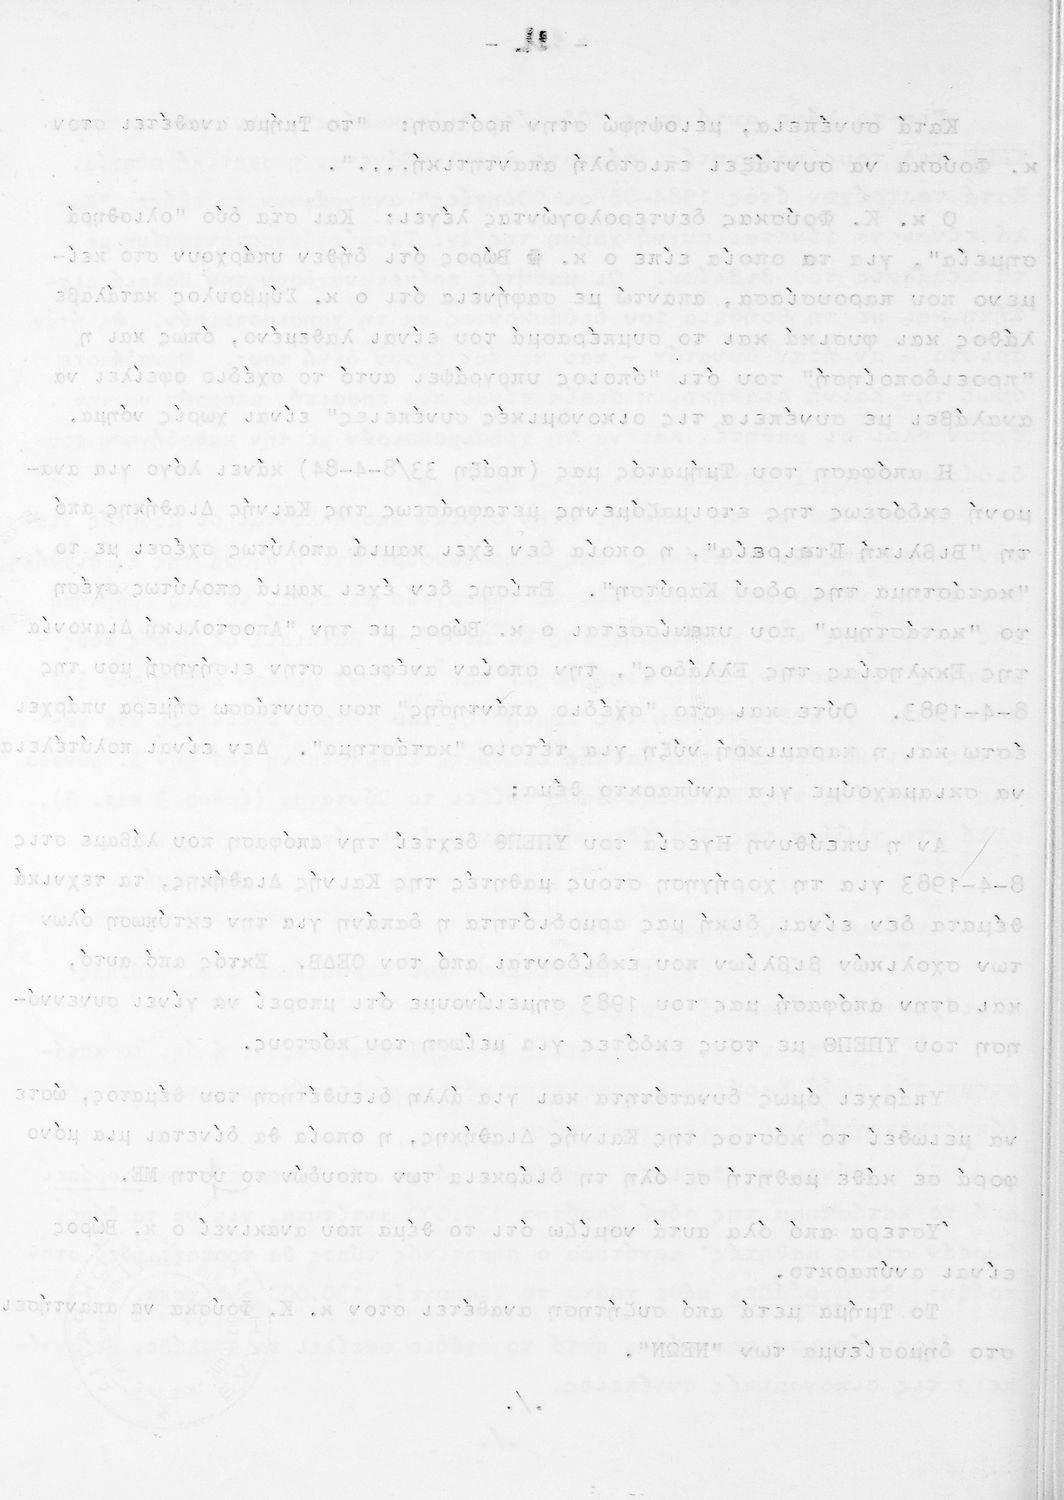 Κατά συνέπεια, μειοψηφώ στην πρόταση: "το Τμήμα αναθέτει στον
κ. Φούσκα να συντάξει επιστολή απαντητική....".
Ο κ. Κ. Φούσκας δευτερολογώντας λέγει: Και στα δύο "ολισθηρά
σημεία", για τα οποία είπε ο κ. Φ Βώρος ότι δήθεν υπάρχουν στο κεί-
μενο που παρουσίασα, απαντώ με σαφήνεια ότι ο κ. Σύμβουλος κατάλαβε
λάθος και φυσικά και το συμπέρασμά του είναι λαθεμένο, όπως και η
"προειδοποίηση" του ότι "όποιος υπογράψει αυτό το σχέδιο οφείλει να
αναλάβει με συνέπεια τις οικονομικές συνέπειες" είναι χωρίς νόημα.
Η απόφαση του Τμήματός μας (πράξη 33/6-4-84) κάνει λόγο για ανα-
μονή εκδόσεως της ετοιμαζόμενης μεταφράσεως της Καινής Διαθήκης από
τη "Βιβλική Εταιρεία", η οποία δεν έχει καμιά απολύτως σχέσει με το
"κατάστημα της οδού Καρύτση". Επίσης δεν έχει καμιά απολύτως σχέση
το "κατάστημα" που υπαινίσσεται ο κ. Βώρος με την "Αποστολική Διακονία
της Εκκλησίας της Ελλάδος", την οποίαν ανέφερα στην εισήγησή μου της
8-4-1983. Ούτε και στο "σχέδιο απάντησης" που συντάσσω σήμερα υπάρχει
έστω και η παραμικρή νύξη για τέτοιο "κατάστημα". Δεν είναι πολυτέλεια
να σκιαμαχούμε για ανύπαρκτο θέμα;
Αν η υπεύθυνη Ηγεσία του ΥΠΕΠΘ δεχτεί την απόφαση που λάβαμε στις
8-4-1983 για τη χορήγηση στους μαθητές της Καινής Διαθήκης, τα τεχνικά
θέματα δεν είναι δική μας αρμοδιότητα η δαπάνη για την εκτύπωση όλων
των σχολικών βιβλίων που εκδίδονται από τον ΟΕΔΒ. Εκτός από αυτό,
και στην απόφασή μας του 1983 σημειώνουμε ότι μπορεί να γίνει συνεννό-
ηση του ΥΠΕΠΘ με τους εκδότες για μείωση του κόστους.
Υπάρχει όμως δυνατότητα και για άλλη διευθέτηση του θέματος, ώστε
να μειωθεί το κόστος της Καινής Διαθήκης, η οποία θα δίνεται μια μόνο
φορά σε κάθε μαθητή σε όλη τη διάρκεια των σπουδών το υστη ΜΕ.
Ύστερα από όλα αυτά νομίζω ότι το θέμα που ανακινεί ο κ. Βώρος
είναι ανύπαρκτο.
Το Τμήμα μετά από συζήτηση αναθέτει στον κ. Κ. Φούσκα να απαντήσει
στο δημοσίευμα των "ΝΕΩΝ".
./.